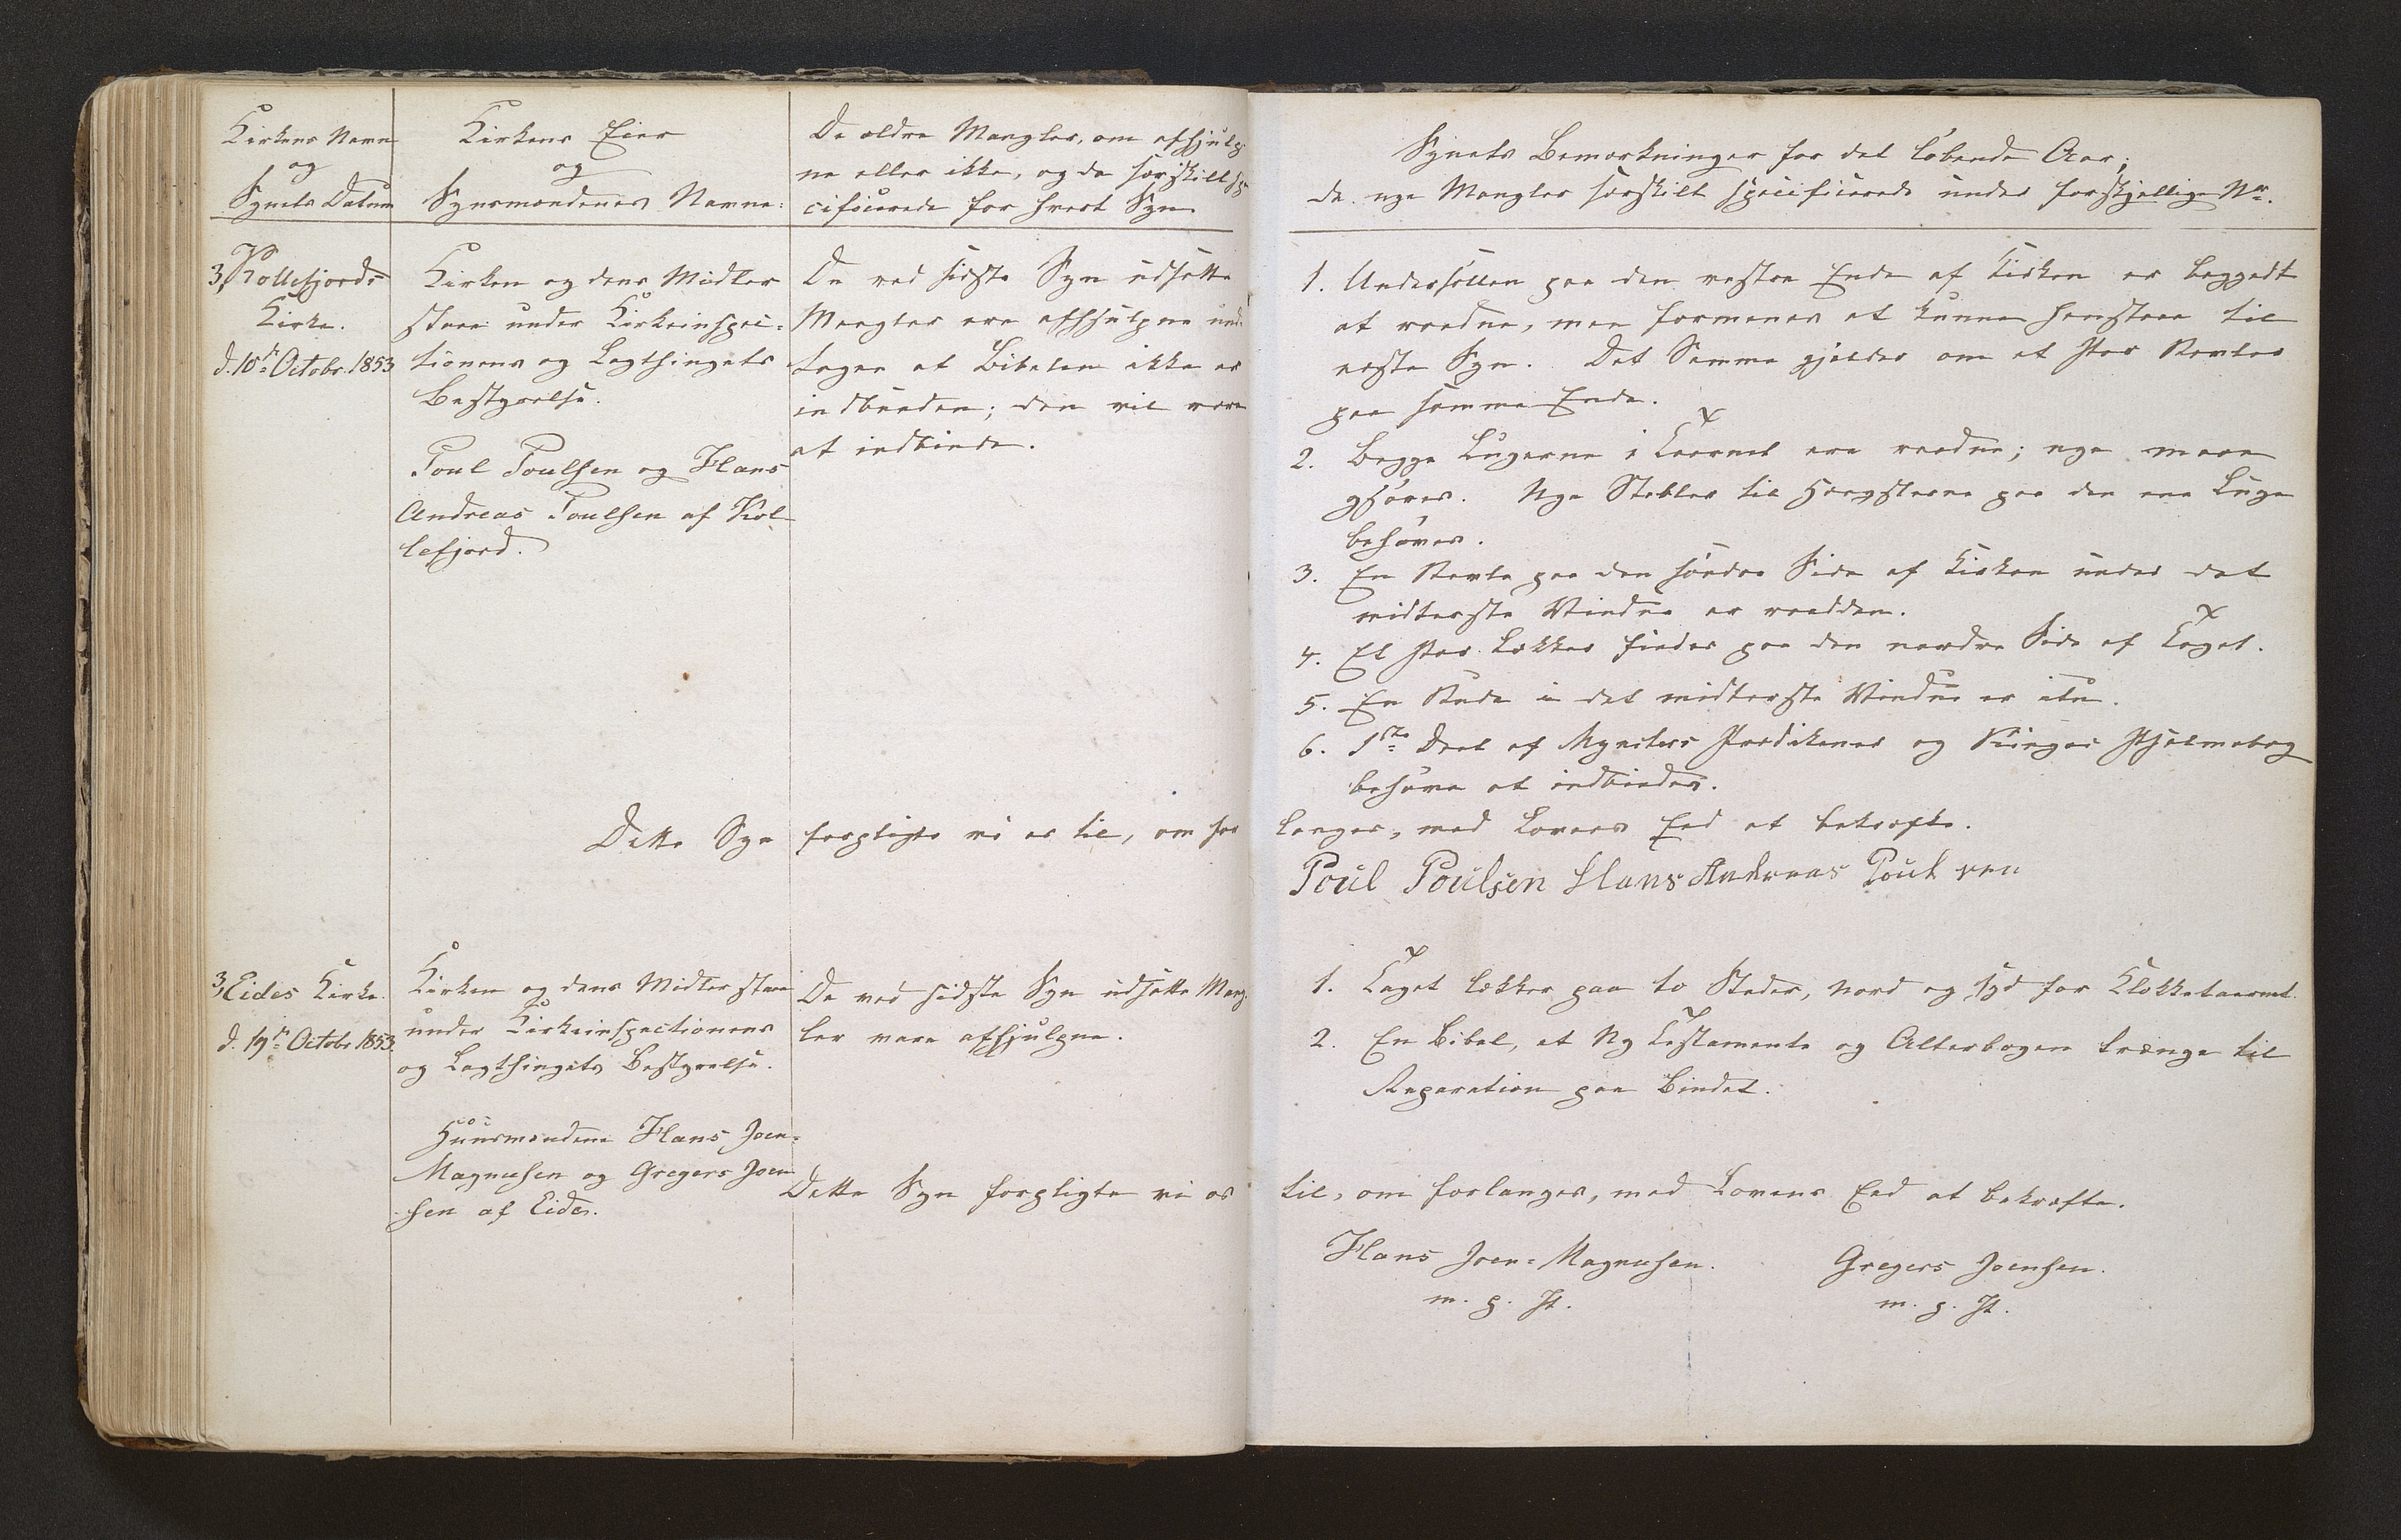 Kirkens Navn
og
Synets Datum
Kirkens Eier
og
Synsmændenes Navne:
De ældre Mangler, om afhjulp-
ne eller ikke, og da særskilt spe
cificerede for hvert Syn
3, Kollefjords
Kirke.
d. 10de Octobr. 1853
Kirken og dens Midler
staae under Kirkeinspec-
tionens og Lagthingets
Bestyrelse.
Poul Poulsen og Hans
Andreas Poulsen af Kol-
lefjord.
De ved sidste Syn udsatte
Mangler ere afhjulpne und-
tagen at Bibelen ikke er
indbunden; den vil være
at indbinde.
Dette Syn forpligte vi os til, om for
3, Eides Kirke.
d. 19de Octobr 1853.
Kirken og dens Midler staae
under Kirkeinspectionens
og Lagthingets Bestyrelse.
Huusmændene Hans Joen-
Magnusen og Gregers Joen
sen af Eide.
De ved sidste Syn udsatte Mang-
ler vare afhjulpne.
Dette Syn forpligte vi os
Synets Bemærkninger for det løbende Aar;
de nye Mangler særskilt specificerede under forskjellige Nr.
1. Undersullen paa den vestre Ende af Kirken er begyndt
at raadne, men formenes at kunne henstaae til
næste Syn. Det Samme gjælder om et Par Revler
paa samme Ende.
2. Begge Lugerne i Taarnet ere raadne; nye maae
gjøres. Nye Stabler til Hængslerne paa den ene Luge
behøves.
3. En Revle paa den søndre Side af Kirken under det
midterste Vindue er raadden.
4. Et Par Lækker findes paa den nordre Side af Taget.
5. En Rude i det midterste Vindue er itu.
6. 1ste Deel af Mynsters Prædikener og Kingos Psalmebog
behøve at indbindes.
langes, med Lovens Eed at bekræfte.
Poul Poulsen Hans Andreas Poulsen
1. Taget lækker paa to Steder, Nord og Syd for Klokketaarnet.
2. En Bibel, et Ny Testamente og Alterbogen trænge til
Reparation paa Bindet.
til, om forlanges, med Lovens Eed at bekræfte.
Hans Joen-Magnusen. Gregers Joensen.
m. p. P. m. p. P.